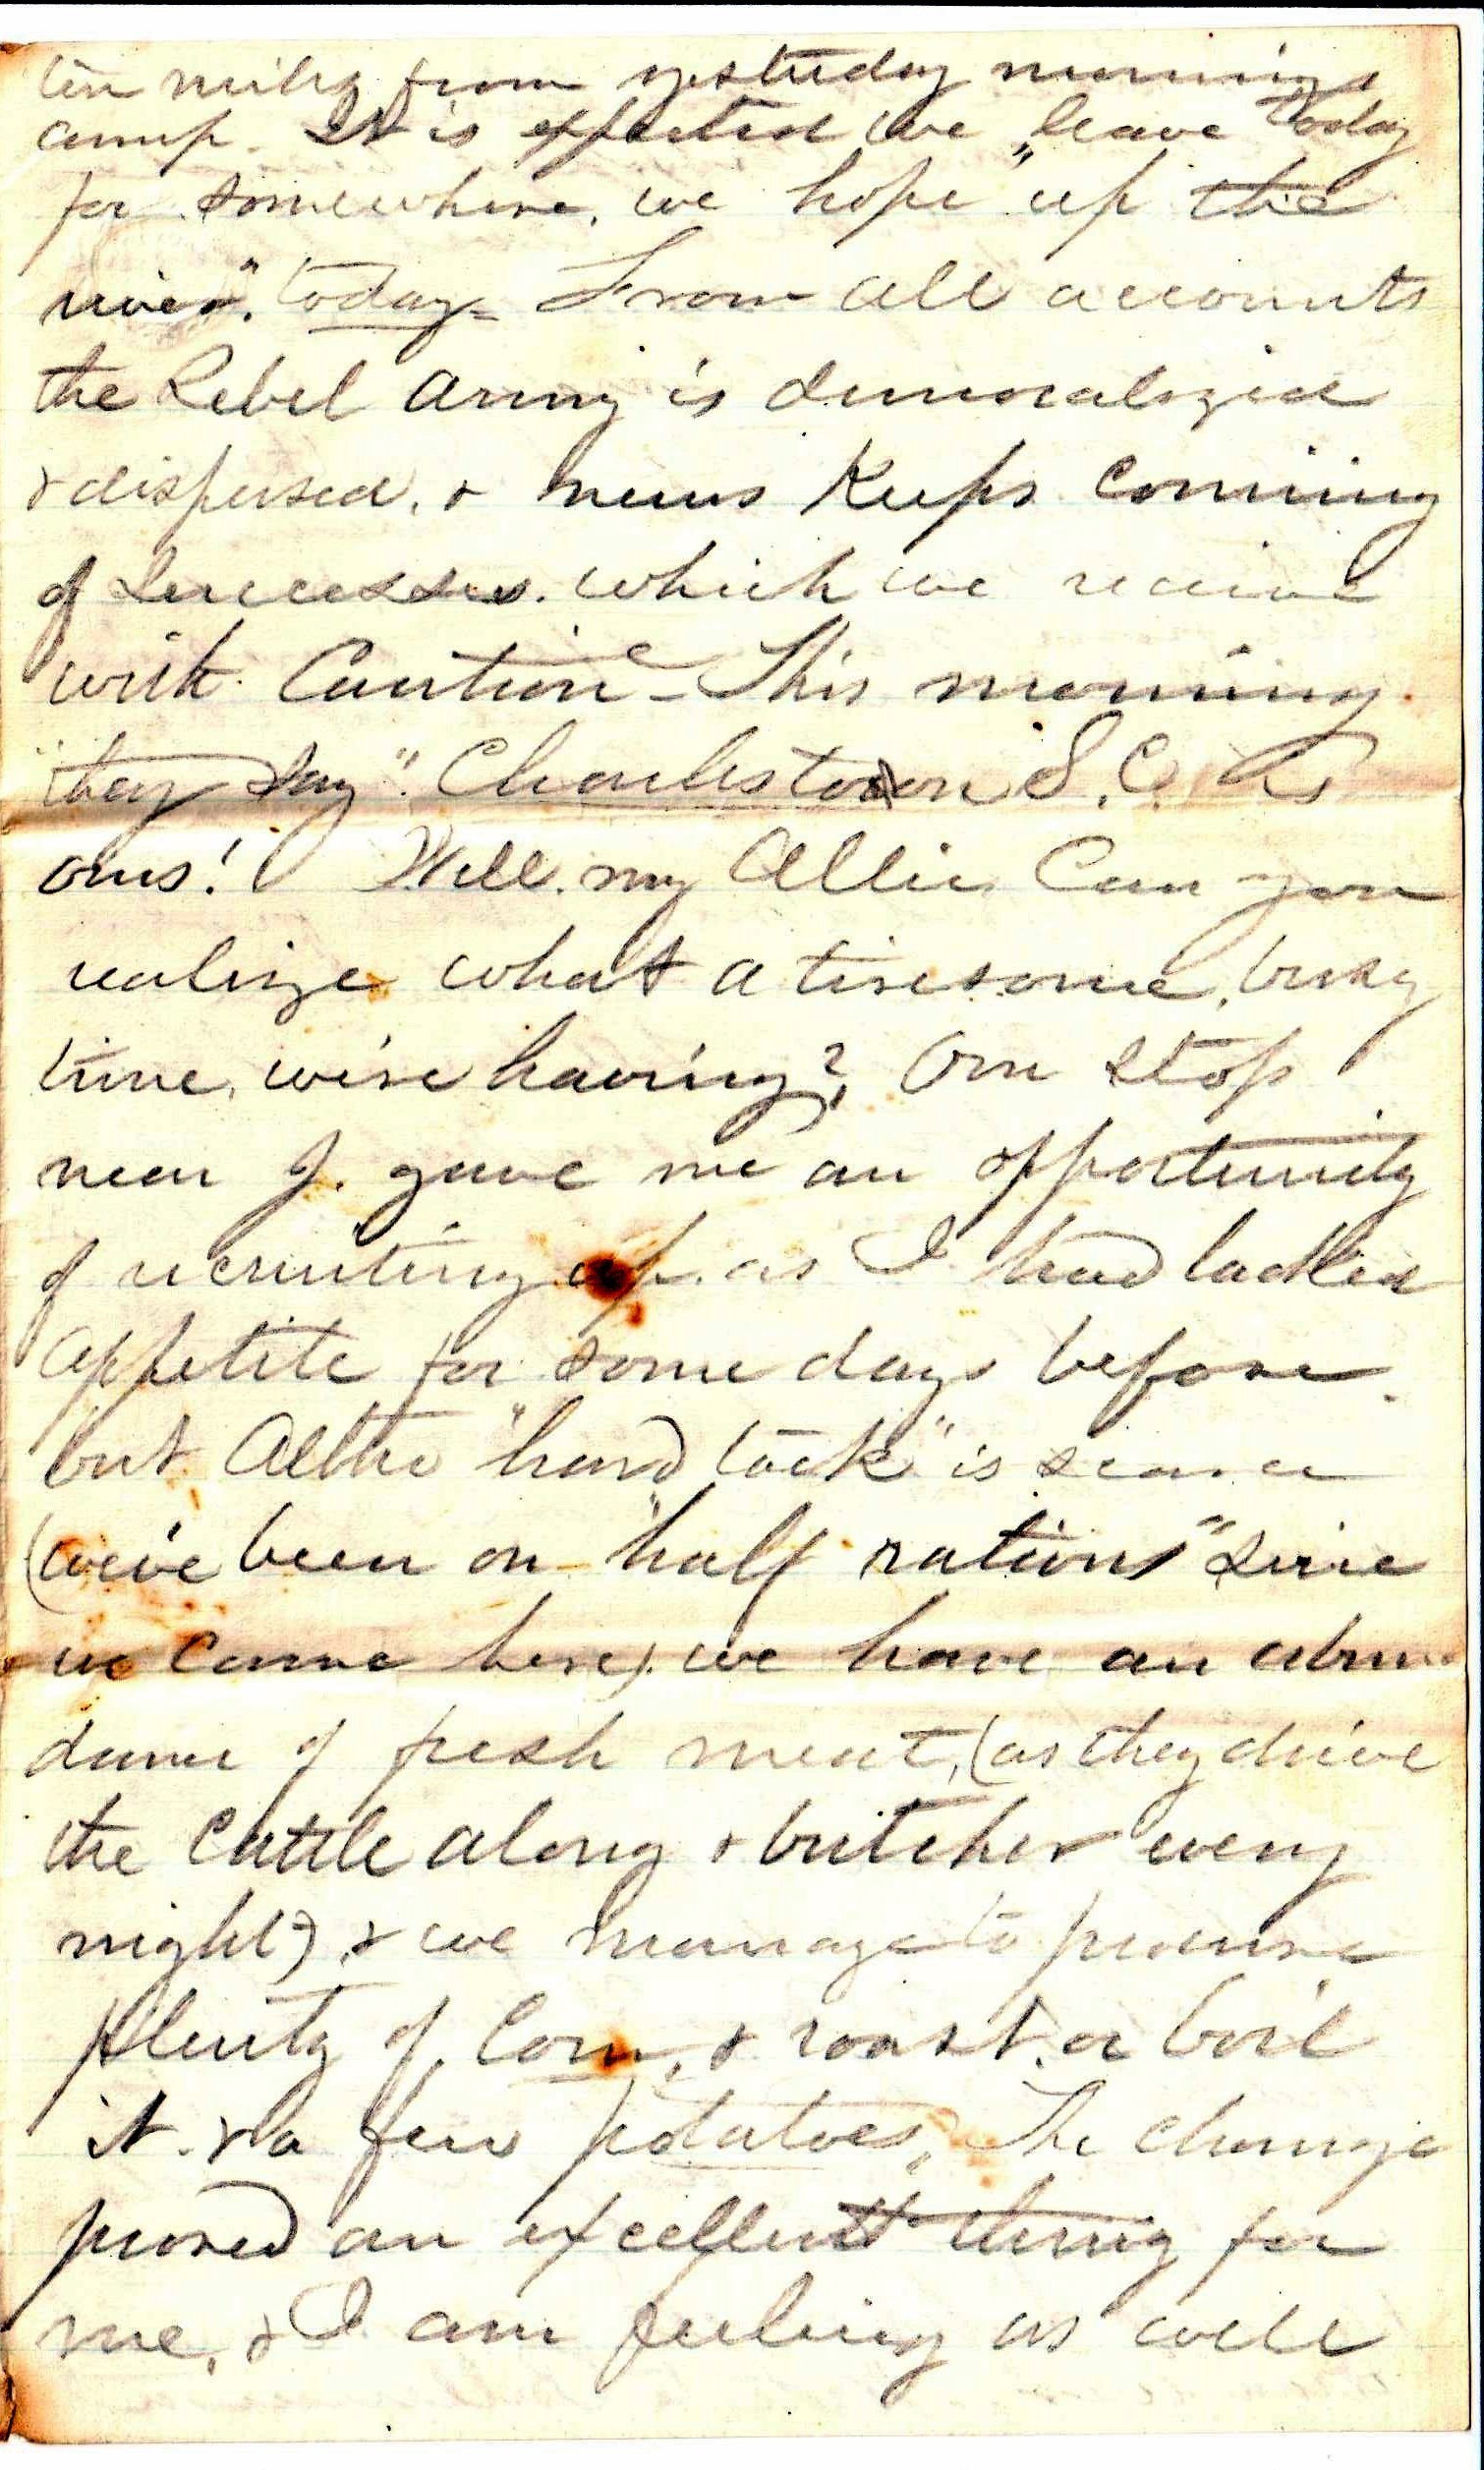 ten miles from yesterday mornings
camp. It is expected we leave today
for somewhere, we hope "up the
river". today - From all accounts
the Rebel Army is demoralized
& dispersed, & news keeps coming
of Successes. which we receive
with Caution - This morning
"they say". Charleston S.C. is
ours! Well. my Allie Can you
realize what a tiresome, busy
time, we're having? Our stop
near J. gave me an opportunity
of recruiting up. as I had lacked
appetite for some days before.
but Altho "hard tack" is scarce
(we've been on "half rations" since
we came here). we have an abun
dance of fresh meat, (as they drive
the Cattle along & butcher every
night) & we manage to procure
plenty of Corn, & roast or boil
it. & a few potatoes, The change
proved an excellent thing for
me, & I am feeling as well